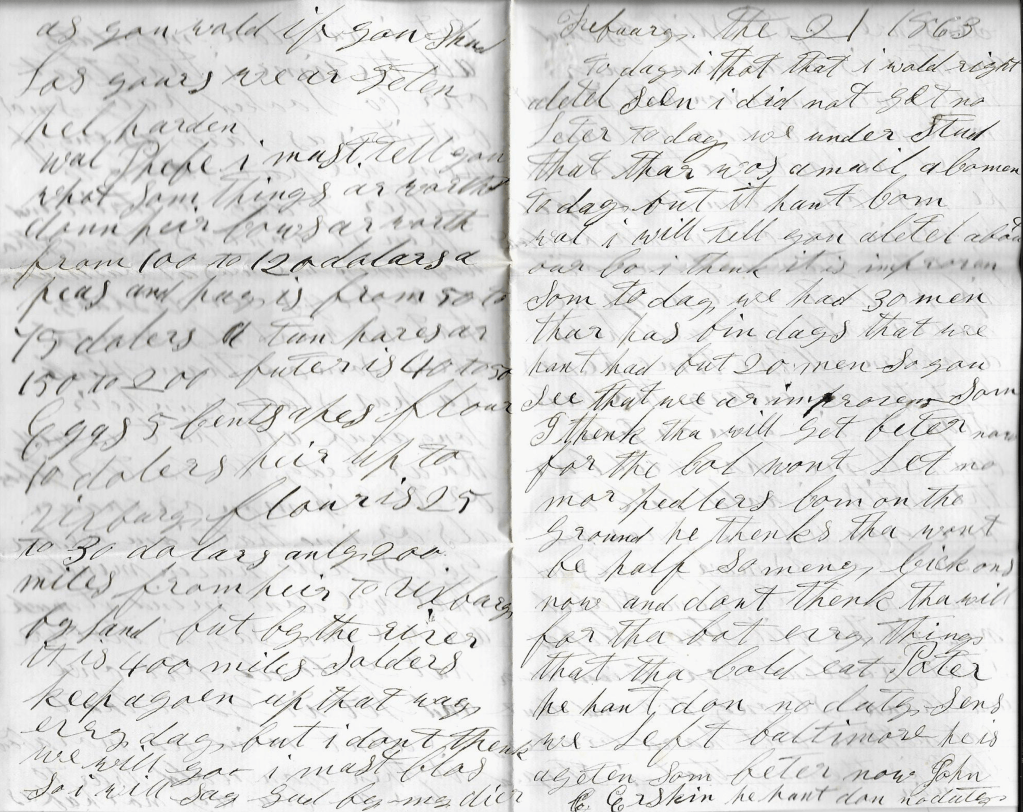 as you wold if you shud
los yours we ar Feten
het harden
wal Phebe i must tell you
what som things ar worth
doun heir cows ar worth
from 100 to 120 dolars a
peas and hay is from 50 to
75 dolers a tun harses ar
150 to 200 buter is 40 to 50
Eggs 5 cents apes flour
10 dolers heir up to
vixburg flour is 25
to 30 dolars only 200
miles from heir to vixburg
by land but by the river
it is 400 miles Solders
keep agoen up that way
evry day but i dont thenk
we will goo i must clos
So i will say Gud by my dier
Februarg the 21 1863
to day i thot that i wold right
aletel Seen i did not get no
Leter to day we under Stud
that thar was a mail a comen
to day but it hant com
wal i will tell you aletel about
our Co i thenk it is improven
Som to day we had 30 men
thar has bin days that we
hant had but 20 men So you
See that we ar improven Som
I thenk tha will get beter now
for the Col wont Let no
mor pedlers com on the
ground he thenks tha wont
be half So meny Sick ons
now and dont thenk tha will
for tha bot evry things
that tha cold eat Poter
he hant don no duty Sens
we Left baltimore he is
ageten Som beter now John
C Erskin he hant don no duty